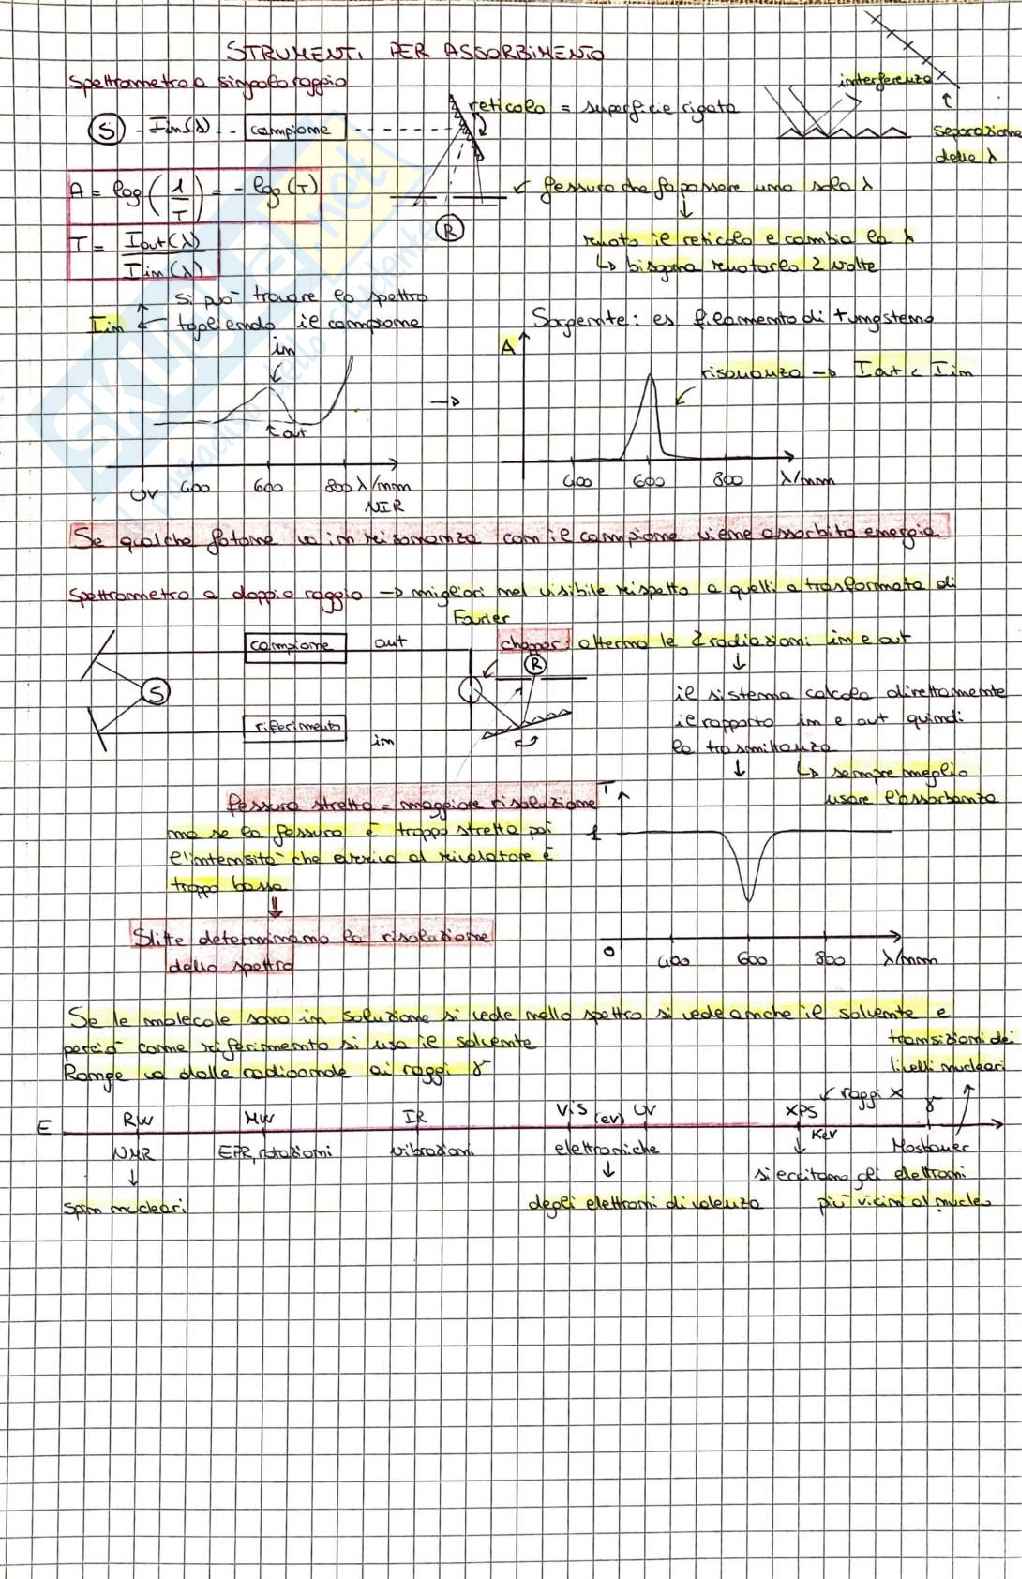 STRUMENTI PER ASSORBIMENTO
Spettrometro a singolo raggio
interferenza
reticolo = superficie rigata
S Iin(λ) campione
separazione
delle λ
A = log(1/T) = -log(T)
fessura che fa passare una sola λ
R
T = Iout(λ)/Iin(λ)
ruoto il reticolo e cambia la λ
↳ bisogna ruotarlo 2 volte
si può trovare lo spettro
Iin ← togliendo il campione
Sorgente: es filamento di tungsteno
in
A
risonanza → Iout < Iin
out
→
UV 400 600 800 λ/nm
NIR
400 600 800 λ/nm
Se qualche fotone va in risonanza con il campione viene assorbita energia
Spettrometro a doppio raggio → migliori nel visibile rispetto a quelli a trasformata di
Fourier
campione out
choper: alterna le 2 radiazioni in e out
R
S
il sistema calcola direttamente
riferimento in
il rapporto in e out quindi
la trasmittanza
↳ sempre meglio
usare l'assorbanza
fessura stretta = maggiore risoluzione
T
ma se la fessura è troppo stretta poi
1
l'intensità che arriva al rivelatore è
troppo bassa
Slitte determinano la risoluzione
dello spettro
0 400 600 800 λ/nm
Se le molecole sono in soluzione si vede nello spettro si vede anche il solvente e
perciò come riferimento si usa il solvente
transizioni dei
livelli nucleari
Range va dalle radioonde ai raggi γ
raggi x
E RW MW IR VIS (eV) UV XPS γ
KeV
NMR EPR, rotazioni vibrazioni elettroniche Mosbauer
si eccitano gli elettroni
spin nucleari degli elettroni di valenza più vicini al nucleo